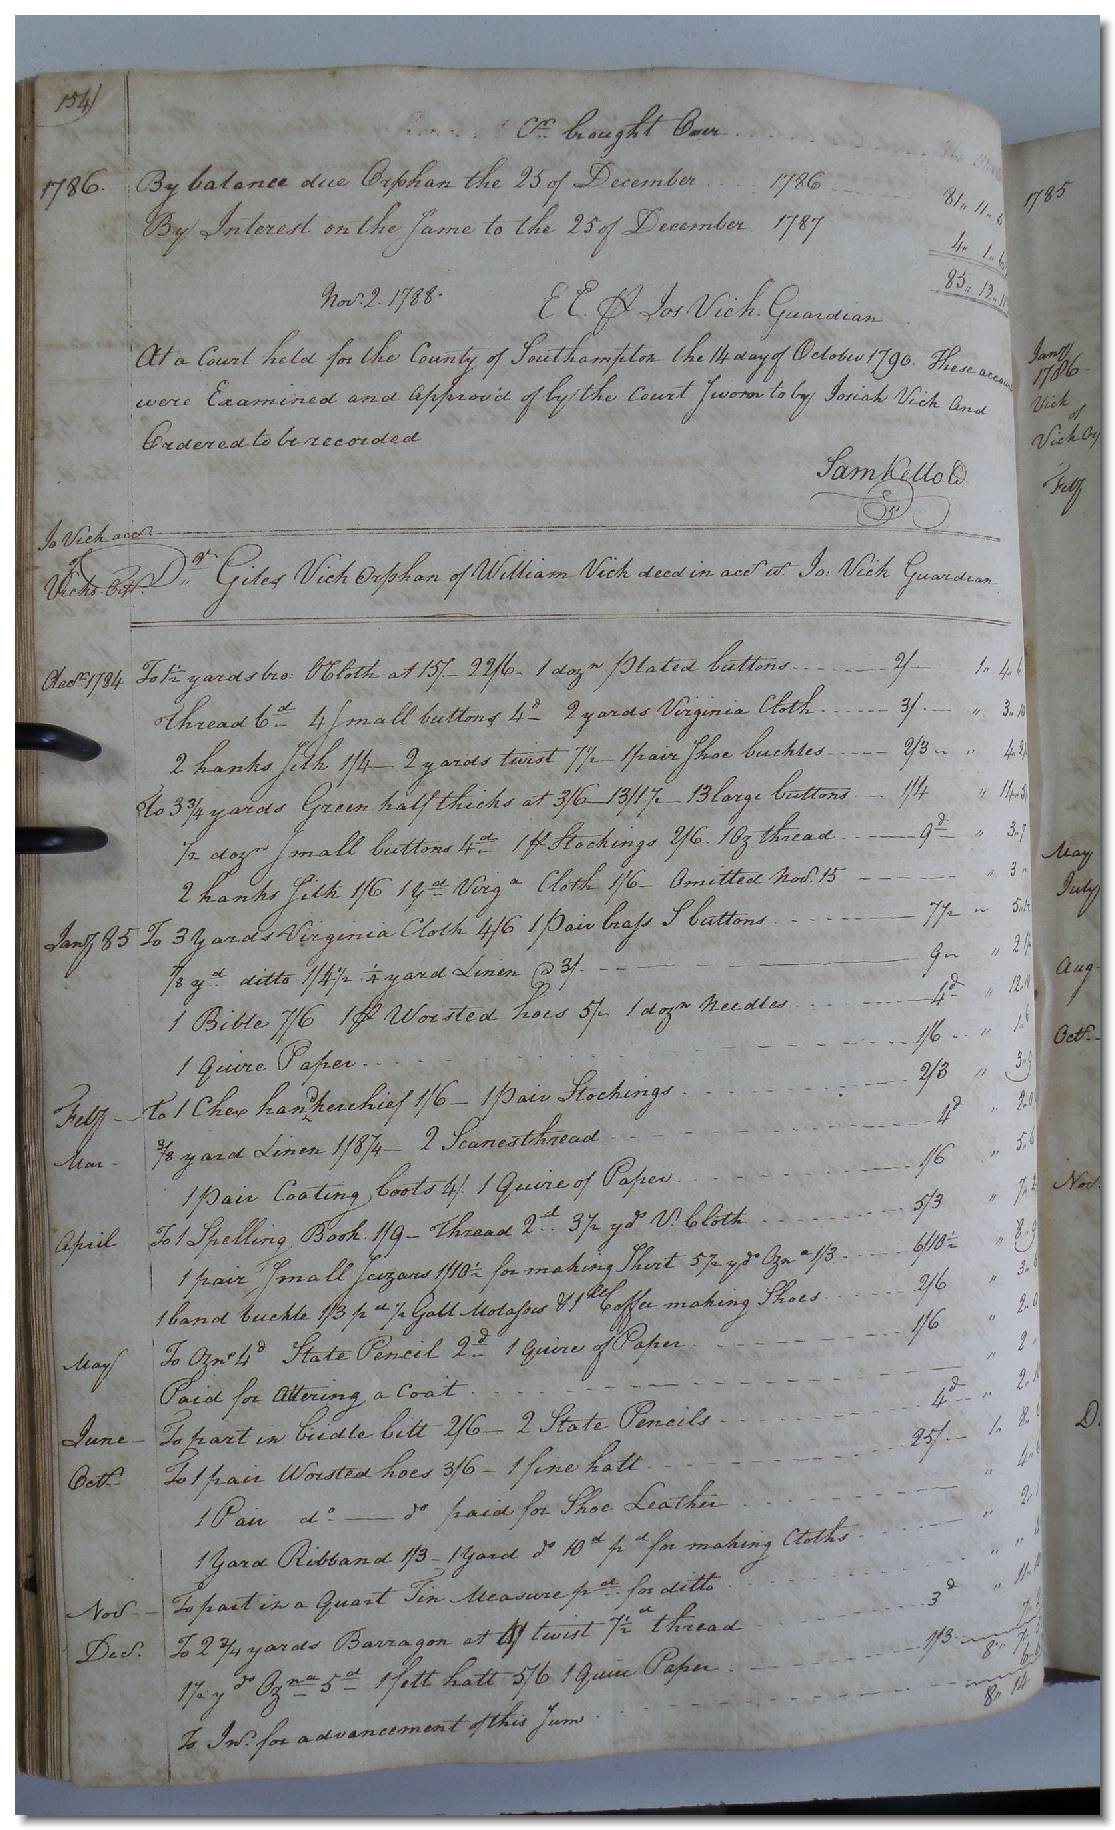 154)
Cr. brought Over
1786. By balance due Orphan the 25 of December 1786 81,, 11,, 5
By Interest on the Same to the 25 of December 1787 4,, 1,, 6
85,, 12,, 11
Nov. 2. 1788. E E. P Jos Vick. Guardian
At a Court held for the County of Southampton the 14 day of October 1790. These accou
were Examined and Approv'd of by the Court Sworn to by Josiah Vick and
Ordered to be recorded
Sam Kello
Jo Vick acct.
of
Vicks Orp. Dr. Giles Vick Orphan of William Vick decd in acct wt. Jo: Vick Guardian
Decr. 1784 To 1½ yards bro. Cloth at 15/ 22/6 1 dozn plated buttons 2/ 1,, 4,, 6
thread 6d 4 Small buttons 4d 2 yards Virginia Cloth 3/ ,, 3,, 10
2 hanks Silk 1/4 2 yards twist 7½ 1 pair Shoe buckles 2/3 ,, 4
To 3¾ yards Green half thicks at 3/6 13/1½ 13 large buttons 1/4 ,, 14,, 5½
½ dozn Small buttons 4d 1 pr Stockings 2/6. 1 Oz thread 9d ,, 3,, 7
2 hanks Silk 1/6 1 yd Virga Cloth 1/6 Omitted Nov. 15 ,, 3
Jany 85 To 3 Yards Virginia Cloth 4/6 1 Pair brass S buttons 7½ ,, 5
⅞ yd ditto 1/4½ ¼ yard Linen @ 3/ 9 ,, 2
1 Bible 7/6 1 pr Worsted hoes 5/ 1 dozn Needles 4d ,, 12,, 10
1 Quire Paper 1/6 ,, 1,, 6
Feby to 1 Chex handkerchief 1/6 1 Pair Stockings 2/3 ,, 3,, 9
Mar ⅜ yard Linen 1/8¼ 2 Scanes thread 4d ,, 2,, 0
1 Pair Coating boots 4/. 1 Quire of Paper 1/6 ,, 5,, 6
April To 1 Spelling Book 1/9 Thread 2d 3½ yds V. Cloth 5/3 ,, 7,, 2
1 pair Small Scizars 1/10½ for making Shirt 5½ yds Ozna 1/3 6/10½ ,, 8,, 9
1 band buckle 1/3 pd ½ Gall Molasses & 1 lb Coffee making Shoes 2/6 ,, 3
May To Ozna 4d State Pencil 2d 1 Quire of Paper 1/6 ,, 2,, 0
Paid for Altering a Coat ,, 2
June To part in bridle bitt 2/6 2 State Pencils 4d ,, 2,, 10
Octr To 1 pair Worsted hoes 3/6 1 fine hatt 25/ 1,, 8
1 Pair do do paid for Shoe Leather ,, 4
1 Yard Ribband 1/3 1 Yard do 10d pd for making Cloths ,, 2
Nov To part in a Quart Tin Measure pd for ditto
Dec. To 2¾ yards Barragon at 4/ twist 7½d thread 3d ,, 11
1½ yds Ozna 5d 1 felt hatt 5/6 1 Quire Paper 1/3 7
8,, 7
To Int. for advancement of this Sum 6
8,, 14
1785
Jany
1786
Vick
of
Vick Orp
Feby
May
July
Aug
Octr
Nov.
D